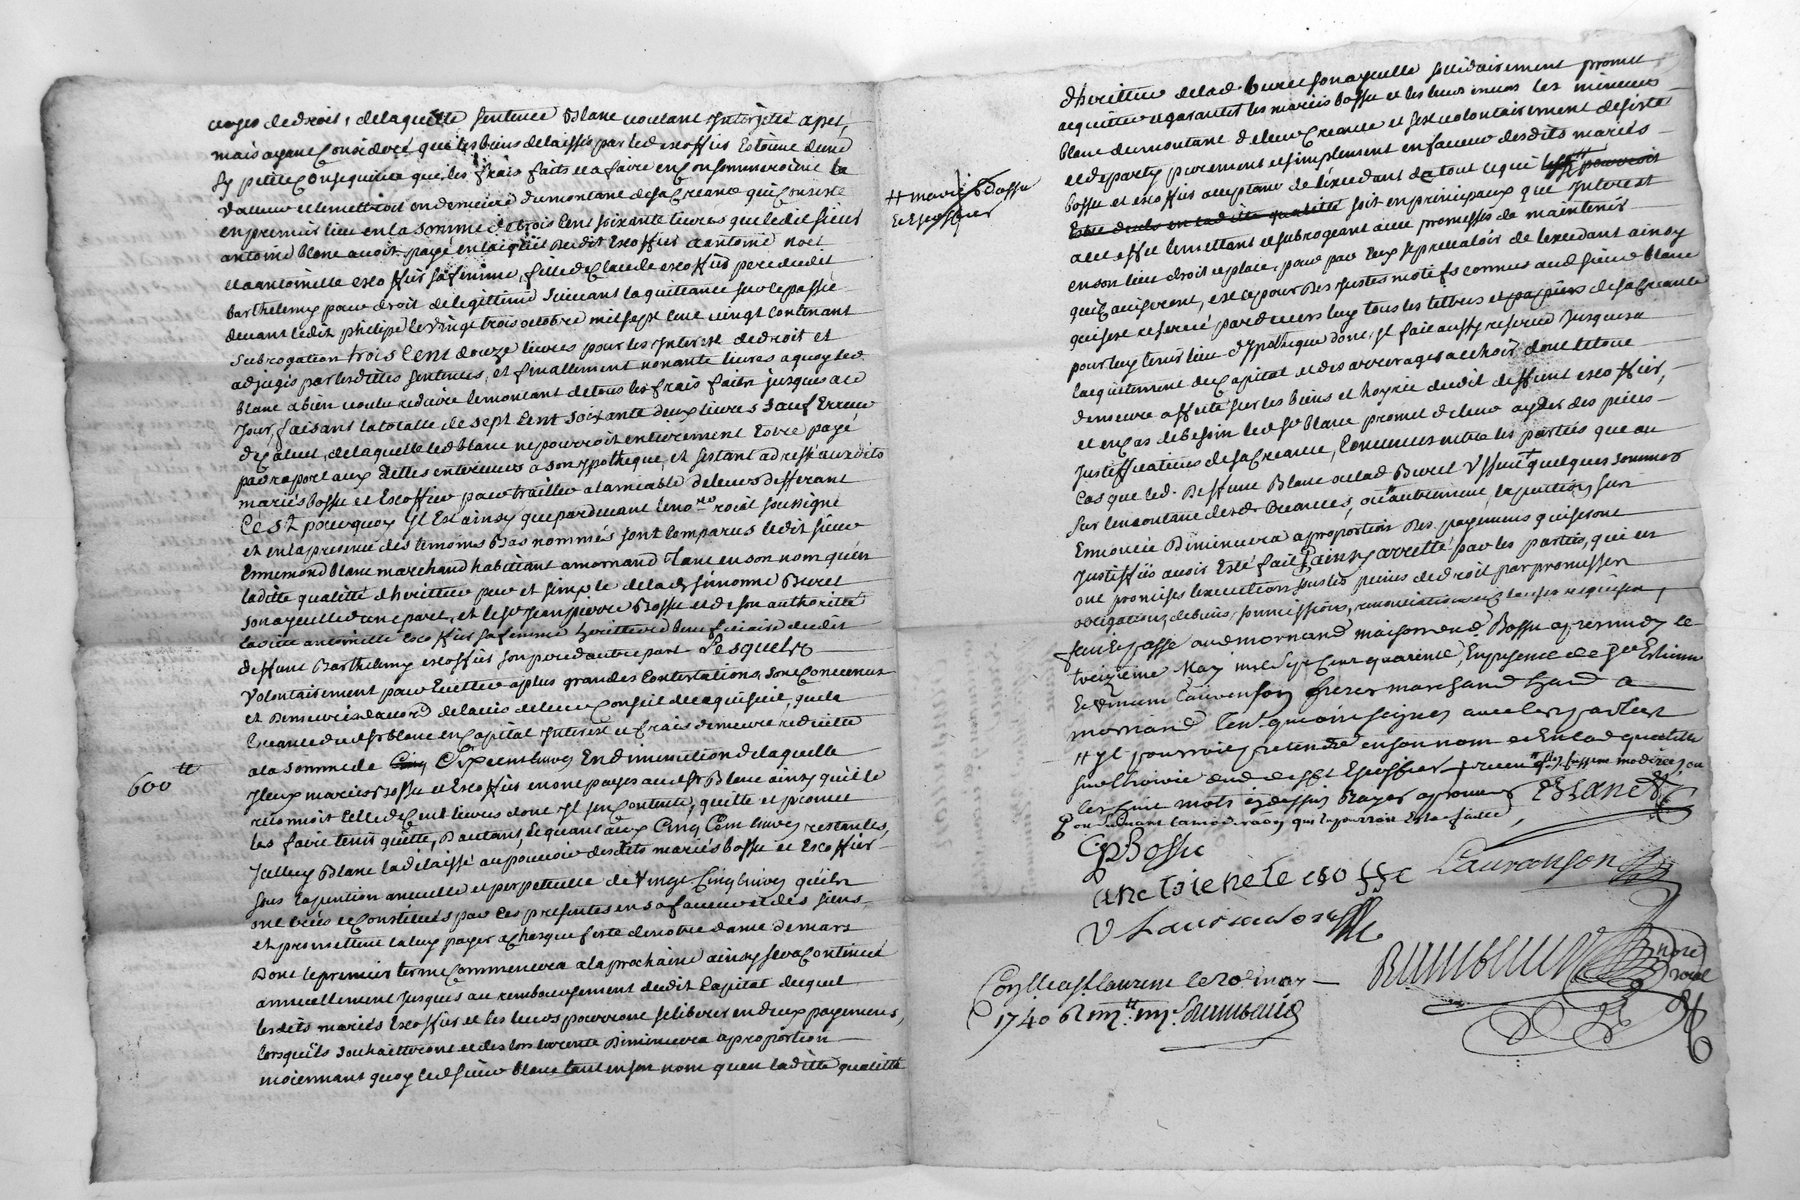 de droit, de laquelle sentence Blanc voulant Interjetté apel,
mais ayant Consideré que les biens delaissés par led escoffier Estoint d'une
sy petite Consequence que les frais faits et a faire en Consommeroint la
valeur et le mettroit en demeure du montant de sa Creance qui Consiste
en premier lieu en la somme de trois Cent soixante livres que ledit sieur
antoine blanc avoit payé en l'acquit dudit Escoffier a antoine noel
et a antoinette escoffier sa femme, fille de Claude escoffier pere dudit
barthelemy pour droit de legittime suivant la quittance sur ce passée
devant ledit philipe le vingt trois octobre mil sept cent vingt contenant
subrogation trois Cent douze livres pour les Interest de droit et
adjugés par lesdittes sentences, et finallement nonante livres a quoy led
blanc a bien voulu reduire le montant de tous les frais faits jusques a ce
jour, faisant la totalle de sept Cent soixante deux livres sauf Erreur
de Calcul, de laquelle led blanc ne pourroit entierement Estre payé
par raport aux dettes enterieures a son ypotheque, et s'estant adressé auxdits
mariés bossu et Escoffier pour traitter a l'amiable de leurs differant
C'est pourquoy Il Est ainsy que pardevant le nore roial soussigné
et en la presence des temoins Bas nommés sont Comparus ledit sieur
Ennemond blanc marchand habitant a mornand tant en son nom qu'en
laditte qualitté d'heritier pur et simple de lad simonne Buret
son ayeulle d'une part, et le sr Jean pierre Bossu et de son authorité
laditte antoinette escoffier sa femme heritiere beneficiaire dudit
deffunt Barthelemy escoffier son pere d'autre part Lesquels
volontairement pour Eviter a plus grandes Contestations, sont Convenus
et Demeurés d'acord de l'avis de leur Conseil de ce qui suit, que la
Creance dud sr blanc en Capital Interest et frais demeure reduitte
a la somme de Six cent livres En diminution de laquelle
600tt
Iceux mariés bossu et Escoffier en ont payé aud sr Blanc ainsy qu'il le
reconnoit Celle de Cent livres dont Il s'en Contente, quitte et promet
les faire tenir quitte, D'autant, Et quant aux Cinq Cent livres restantes,
Icelluy Blanc la delaissé au pouvoir desdits mariés bossu et Escoffier
sous la pention annuelle et perpetuelle de vingt Cinq livres qu'ils
ont créés et Constitués par Ces presentes en sa faveur et des siens
et promettent la luy payer a Chasque feste de notre dame de mars
Dont le premier terme Commencera a la prochaine ainsy sera Continué
annuellement jusques au remboursement dudit Capital duquel
lesdits mariés Escoffier et les leurs pourront se liberer en deux payements,
lorsqu'ils souhaitteront et des lors la rente Diminuera a proportion
moiennant quoy led sieur blanc tant en son nom qu'en laditte qualitté
# mariés Bossu
Et Escoffier
d'heritier de lad buret son ayeulle sollidairement promet
acquitter et garantir les mariés bossu et les leurs envers les mineurs
blanc du montant de leur Creance et s'est volontairement desisté
et departy purement et simplement en faveur desdits mariés
bossu et escoffier aceptant de l'excedant de tout ce qui # pourroit
Estre deub en laditte qualitté soit en principaux que Interest
a cet effet les mettant et subrogeant avec promesse de maintenir
en son lieu droit et place, pour par Eux se prevaloir de l'excedant ainsy
qu'ils aviseront, et ce pour Des justes motifs connus aud sieur blanc
qui s'est reservé pardevers luy tous les tittres et papiers de sa Creance
pour luy tenir lieu d'ypotheque dont Il fait aussy reserve Jusques a
l'acquittement du Capital et des arrerages a echoir dont le tout
demeure affecté sur les biens et hoyrie dudit deffunt escoffier,
et en Cas de besoin led sr blanc promet de leur ayder des pieces
Justifficatives de sa Creance, Convenues entre les parties que au
Cas que led. Deffunt Blanc ou lad Buret Ussent quelques sommes
sur le montant desd. Creances, ou autrement, la pention sus
Ennoncée Diminuera a proportion Des payements qui seront
Justiffiés avoir Esté fait, ainsy arretté par les parties, qui en
ont promises l'execution sous les peines de droit par promesses
obligations de biens, soumissions, renonciations et clauses requises,
fait et passé audit mornand maison dud. Bossu apres midy le
treizieme May mil sept Cent quarente, En presence de sr Estienne
et Laurenson freres marchand hand a
mornand temt qui ont signés avec les parties
# Il pourroit pretendre en son nom et En lad qualitté
sur l'hoirie dud defft Escoffier
les huit mots cy dessus Rayés approuvés EBlanc
CpBossu
antoienete escoffie
Laurenson
V Laurenson
Raimbaud Nore Roial
Conllé a St laurent le 20e may
1740 Raimbaud